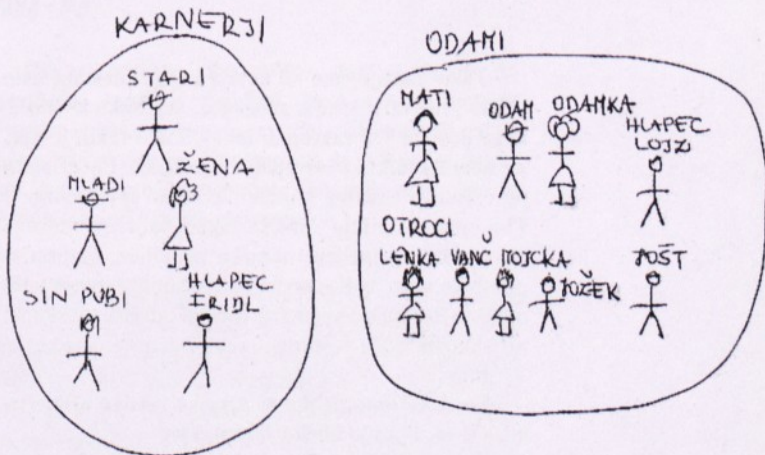 KARNERJI
STARI
ŽENA
MLADI
SIN PUBI
HLAPEC
IRIDL
ODAMI
MATI
ODAM
ODAMKA
HLAPEC
LOJZ
OTROCI
LENKA VANČ TOJCKA
JOŽEK
JOŠT